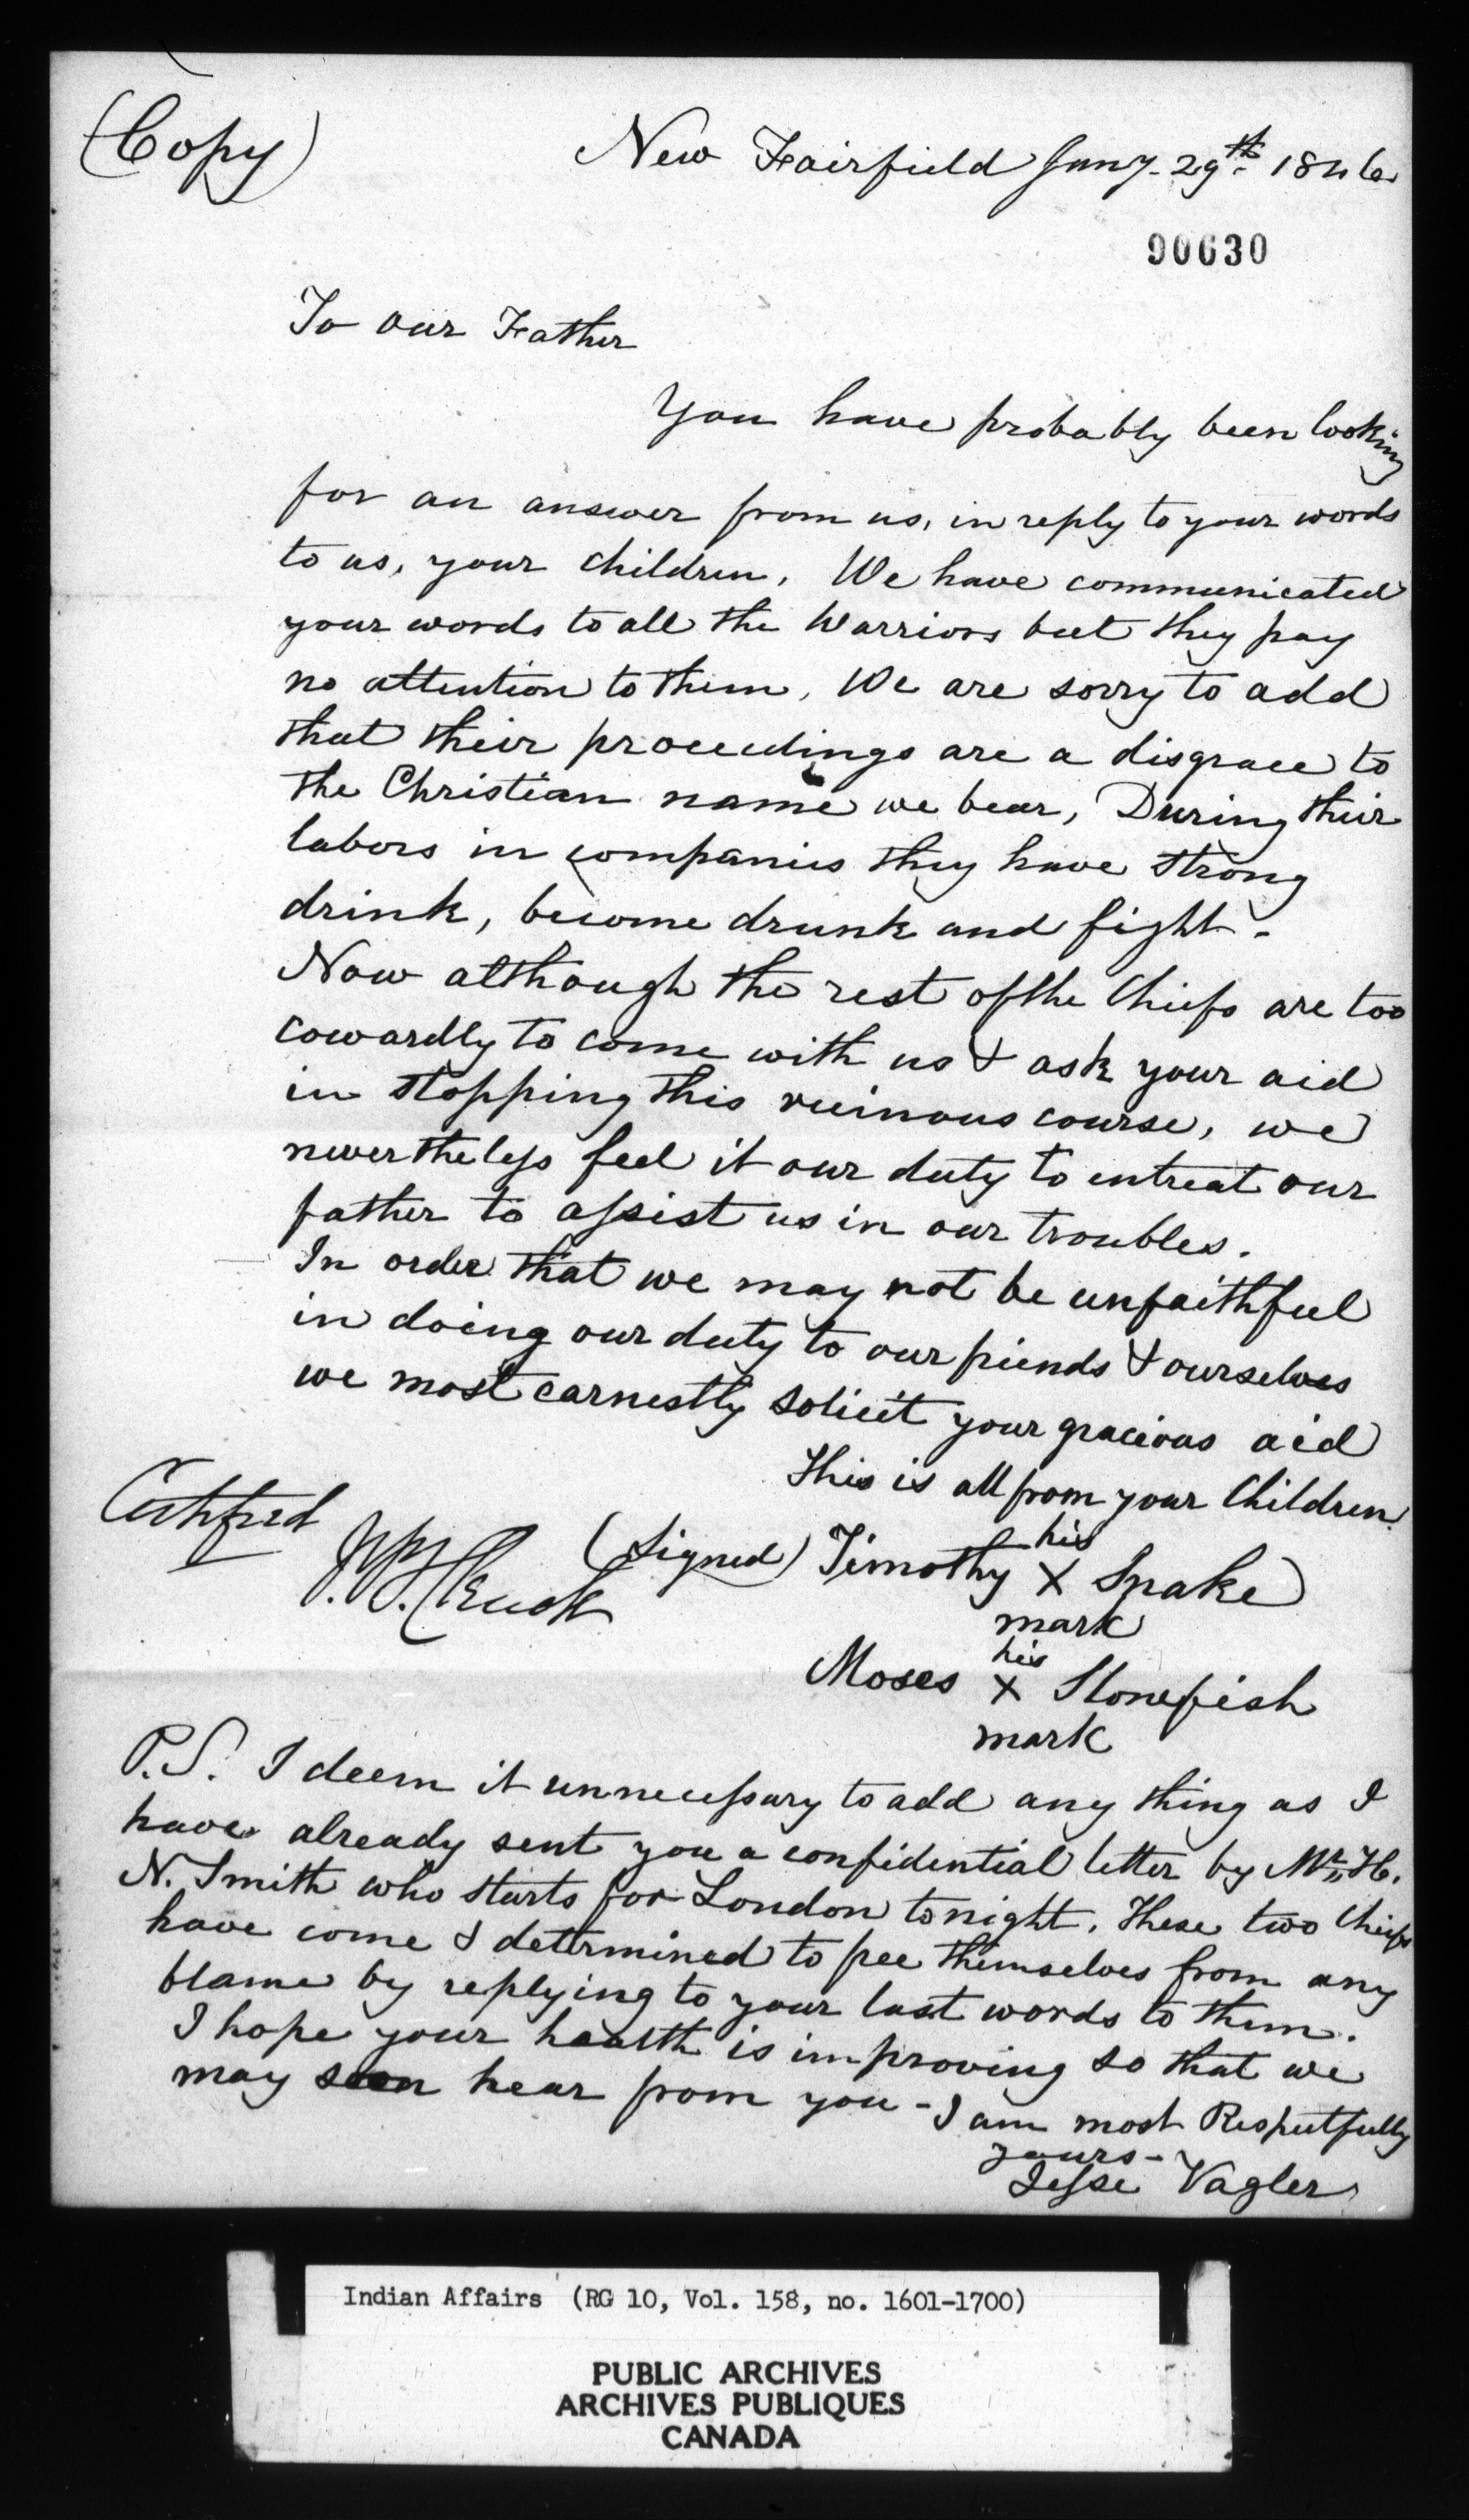 (Copy)
New Fairfield Jany. 29th 1846
90630
To our Father
You have probably been looking
for an answer from us, in reply to your words
to us, your children. We have communicated
your words to all the Warriors but they pay
no attention to them, We are sorry to add
that their proceedings are a disgrace to
the Christian name we bear, During their
labors in companies they have strong
drink, become drunk and fight -
Now although the rest of the Chiefs are too
cowardly to come with us & ask your aid
in stopping this ruinous course, we
nevertheless feel it our duty to entreat our
father to assist us in our troubles.
In order that we may not be unfaithful
in doing our duty to our friends & ourselves
we most earnestly solicit your gracious aid
This is all from your Children.
Certified
(Signed) Timothy his X mark Snake
Moses his X mark Stonefish
P.S. I deem it unnecessary to add any thing as I
have already sent you a confidential letter by Mr. H.
N. Smith who starts for London tonight. These two Chiefs
have come & determined to free themselves from any
blame by replying to your last words to them.
I hope your health is improving so that we
may soon hear from you - I am most Respectfully
yours -
Jesse Vogler
Indian Affairs (RG 10, Vol. 158, no. 1601-1700)
PUBLIC ARCHIVES
ARCHIVES PUBLIQUES
CANADA